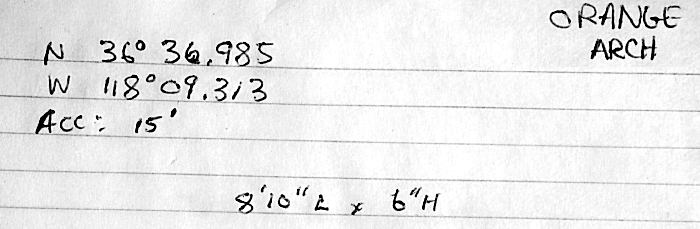 ORANGE
ARCH
N 36° 36.985
W 118° 09.313
Acc: 15'
8'10" L x 6" H